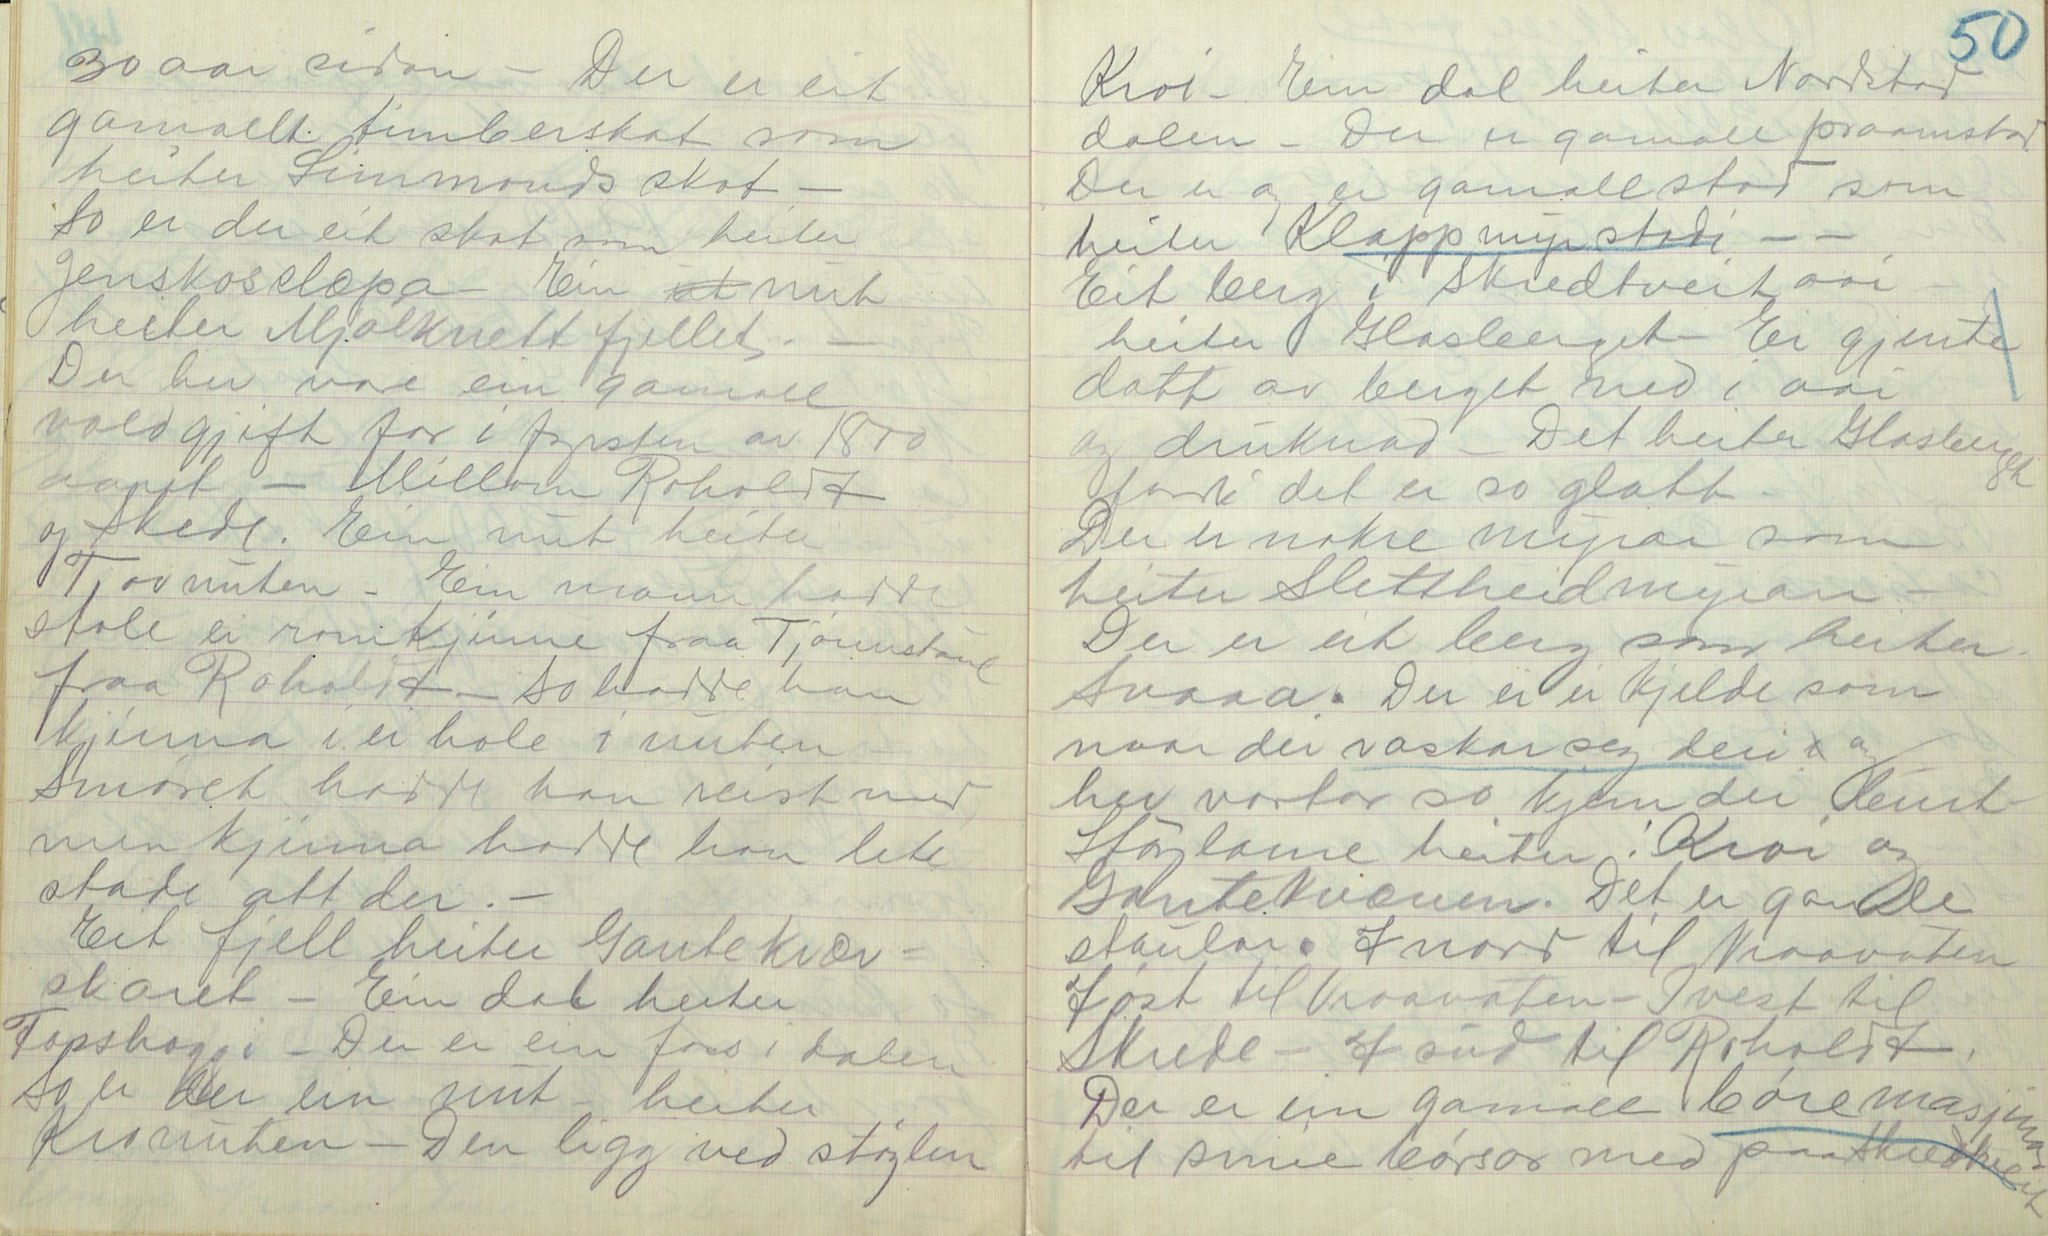 30 aar sidan - Der er eit
gamallt timberskot som
heiter Simmonds skot -
So er der eit skot som heiter
Jenskosslepa - Ein nut
heiter Mjølknatt fjellet. -
Der hev vore ein gamall
voldgjift for i fyrsten av 1800
aaret - Millom Roholdt
og Skede. Ein nut heiter
Tjovnuten - Ein mann hadde
stole ei romkjinne fraa Tjønnstaul
fraa Roholdt - So hadde han
kjinna i ei hole i nuten -
Smøret hadde han reist med
men kjinna hadde han lete
stade att der. -
Eit fjell heiter Gautekvæv-
skaret - Ein dal heiter
Topshoggi - Der er ein foss i dalen
So er der ein nut - heiter
Kronuten - Den ligg ved støylen
50
Kroi - Ein dal heiter Nordstad
dalen - Der er gamall praamstad
Der er og ei gamall stod som
heiter Klappmyrstodi - -
Eit berg i Skredtveit aai -
heiter Glasberget - Ei gjente
datt av berget ned i aai
og druknad - Det heiter Glasberget
fordi det er so glatt -
Der er nokre myrar som
heiter Slettheidmyran -
Der er eit berg som heiter
Svaaa. Der er ei kjelde som
naar dei vaskar seg deri og
hev vortor so kjem dei burt
Støylane heiter: Kroi og
Gautekvæven. Det er gamle
staular. I nord til Vraavaten
I øst til Vraavaten - I vest til
Skrede - I sud til Roholdt.
Der er ein gamall boremasjina
til smie børsor med paa Skredtveit